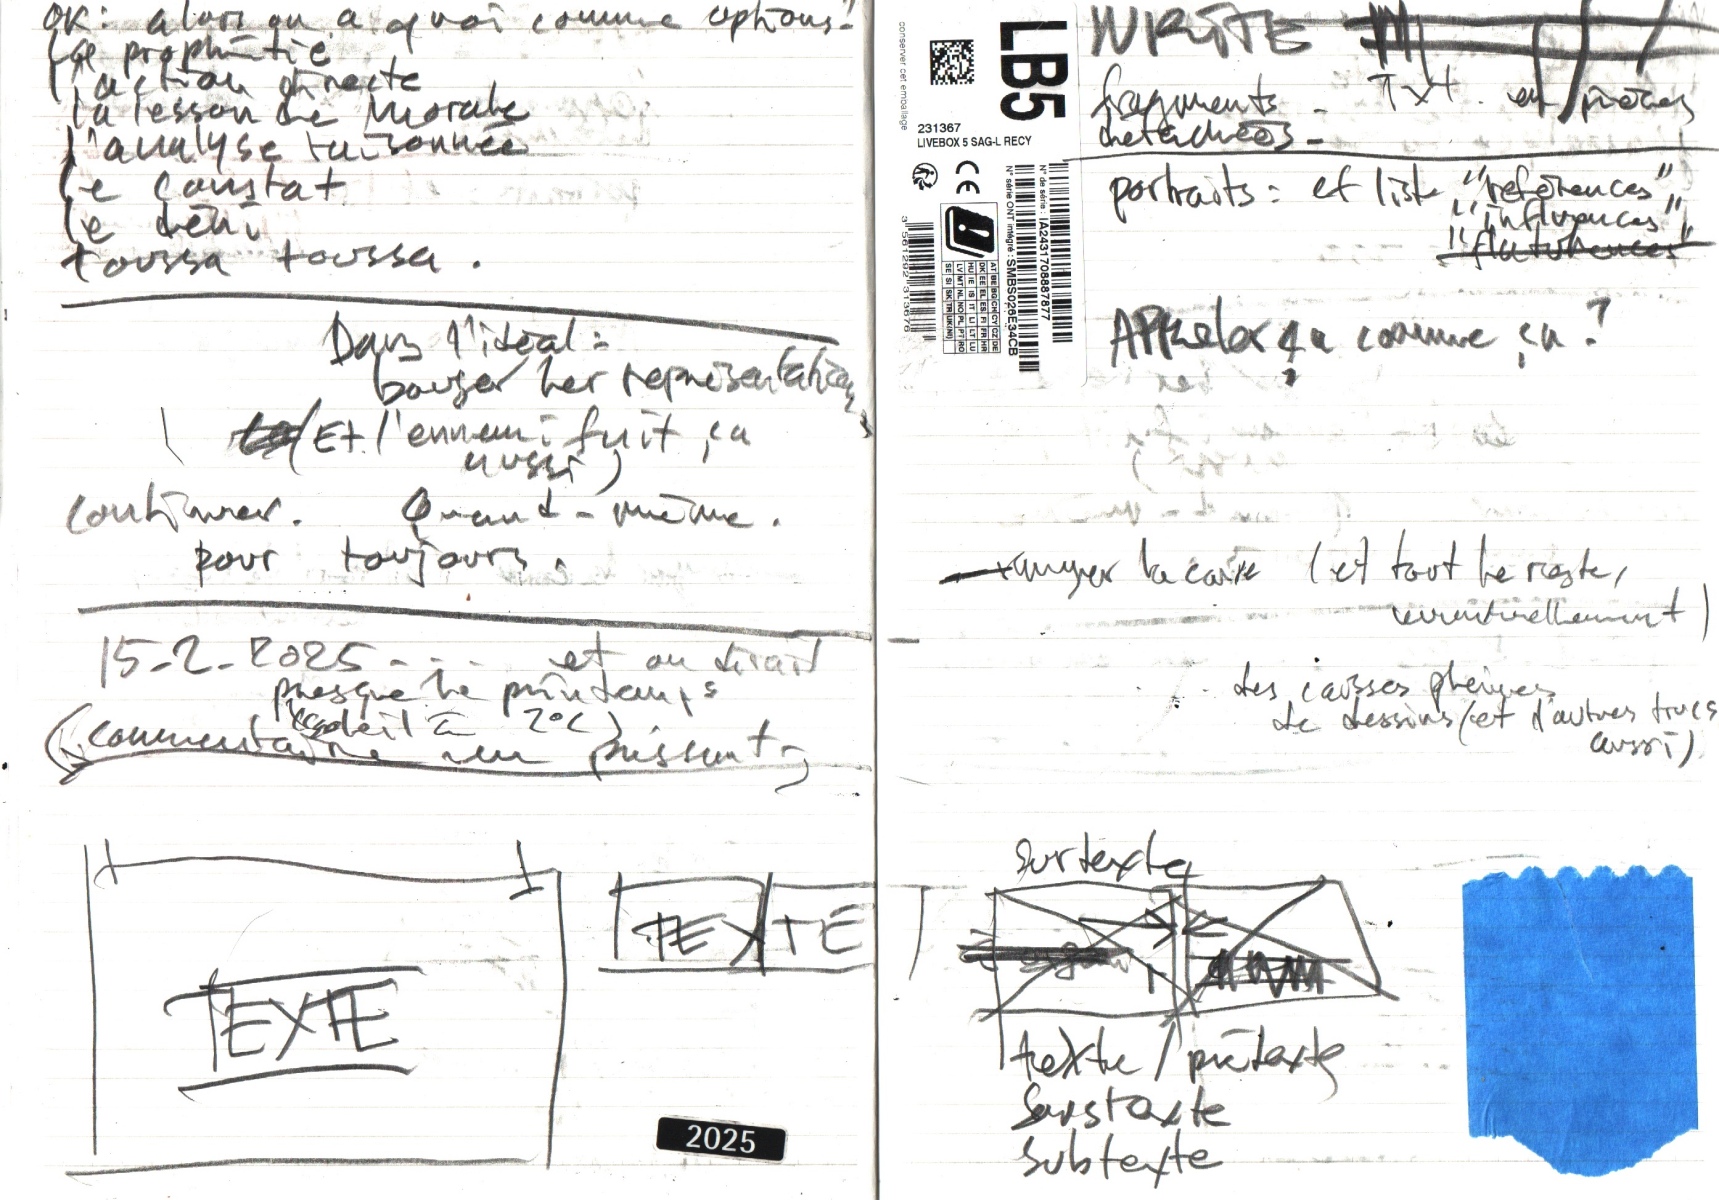 OK: alors on a quoi comme options?
La prophétie
l'action directe
la lesson de morale
l'analyse raisonnée
le constat
le déni
toussa toussa.
Dans l'idéal:
bouger les représentations
(Et l'ennemi fuit, ça
aussi)
continuer. Quand-même.
pour toujours.
15-2-2025 - - - et on dirait
presque le printemps
(soleil à 2°C)
(commentaire en passant)
TEXTE
TEXTE
2025
conserver cet emballage
LB5
231367
LIVEBOX 5 SAG-L RECY
CE
N° de série: IA2431708887877
N° série ONT intégré: SMBS026E34CB
3 561292 313676
AT BE BG CH CY CZ DE
DK EE EL ES FI FR HR
HU IE IS IT LI LT LU
LV MT NL NO PL PT RO
SE SI SK TR UK(NI)
WRITE
fragments - Txt. et poèmes
détachées -
portraits: et liste "références"
"influences"
"flatulences"
Appeler ça comme ça?
ranger la cave (et tout le reste,
éventuellement)
des caisses pleines
de dessins (et d'autres trucs
aussi)
Surtexte
texte / prétexte
Soustexte
Subtexte